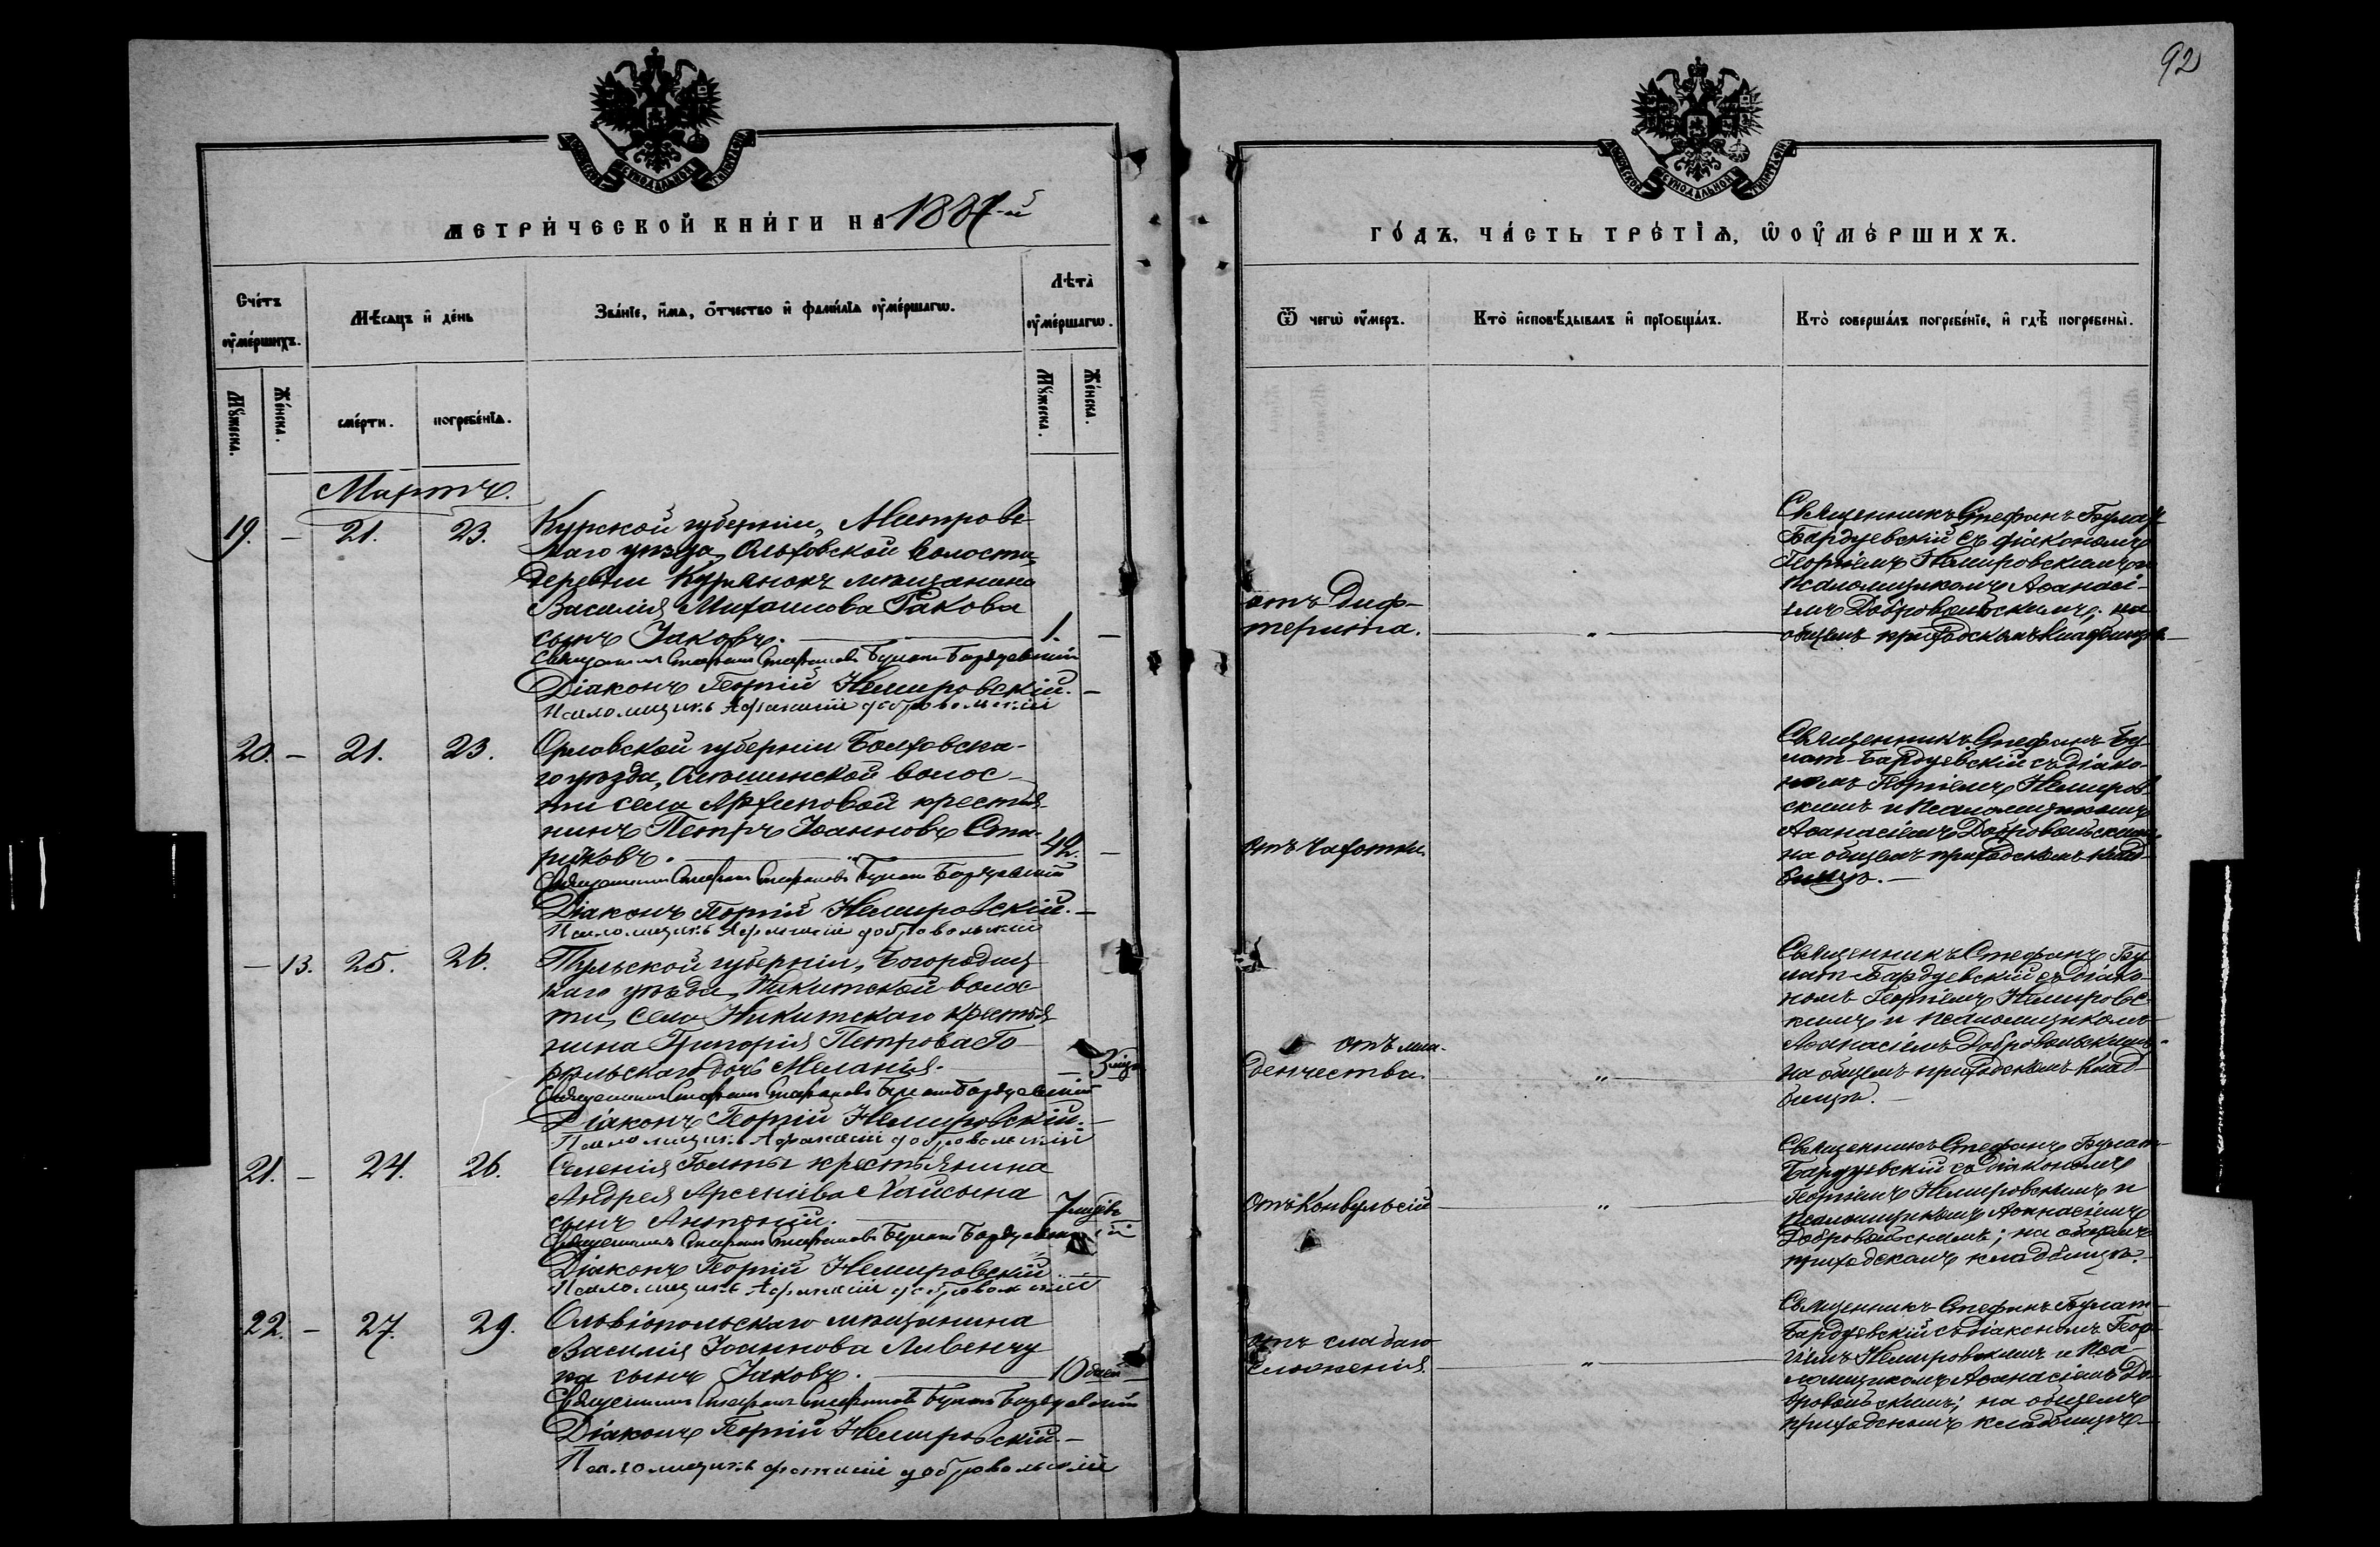 92
МОСКОВСКОЙ СѴНОДАЛЬНОЙ ТИПОГРАФІИ
МЕТРИ́ЧЕСКОЙ КНИ́ГИ НА 188 -й
ГО́ДЪ, ЧА́СТЬ ТРЕ́ТІѦ, Ѡ ОУ҆МЕ́РШИХЪ.
Сче́тъ оу҆ме́ршихъ.
Мѣ́сяцъ и҆ де́нь
Зва́нїе, и҆́мѧ, ѻ҆́тчество и҆ фами́лїа оу҆ме́ршагѡ.
Лѣ́та оу҆ме́ршагѡ.
Ѿ чегѡ̀ оу҆́меръ.
Кто̀ и҆сповѣ́дывалъ и҆ прїобща́лъ.
Кто̀ соверша́лъ погребе́нїе, и҆ гдѣ̀ погребены̀.
Мꙋ́жеска.
Же́нска.
сме́рти.
погребе́нїѧ.
Мꙋ́жеска.
Же́нска.
Мартъ.
19. — 21. 23.
Курской губерніи,
уѣзда, Ольховской волости,
деревни мѣщанина
Василія Михаилова Ракова
сынъ Іаковъ. — 1. —
Священникъ Стефанъ Стефановъ Булатъ Бардуевскій
Діаконъ Георгій Немировскій. —
Псаломщикъ Афанасій Добровольскій
отъ диф-
терита. — „ —
Священникъ Стефанъ Булат
Бардуевскій съ діакономъ
Георгіемъ Немировскимъ и
псаломщикомъ Аѳанасі-
емъ Добровольскимъ; на
общемъ приходскомъ кладбищѣ
20. — 21. 23.
Орловской губерніи Болховска-
го уѣзда, волос-
ти села крестья-
нинъ Петръ Іоанновъ
. — 42. —
Священникъ Стефанъ Стефановъ Булатъ Бардуевскій
Діаконъ Георгій Немировскій. —
Псаломщикъ Афанасій Добровольскій
отъ чахотки.
Священникъ Стефанъ Бу-
лат-Бардуевскій съ діако-
номъ Георгіемъ Немиров-
скимъ и псаломщикомъ
Аѳанасіемъ Добровольскимъ
на общемъ приходскомъ клад-
бищѣ. —
— 13. 25. 26.
Тульской губерніи, Богородиц-
каго уѣзда, Никитской волос-
ти, села Никитскаго крестья-
нина Григорія Петрова
дочь Меланія. —
Священникъ Стефанъ Стефановъ Булатъ Бардуевскій
Діаконъ Георгій Немировскій. —
Псаломщикъ Афанасій Добровольскій
отъ мла-
денчества. — „ —
Священникъ Стефанъ Бу-
лат-Бардуевскій съ діако-
номъ Георгіемъ Немировс-
кимъ и псаломщикомъ
Аѳанасіемъ Добровольскимъ
на общемъ приходскомъ клад-
бищѣ. —
21. — 24. 26.
Селенія Голты крестьянина
Андрея Арсеніева
сынъ Антоній. — 7
Священникъ Стефанъ Стефановъ Булатъ Бардуевскій
Діаконъ Георгій Немировскій
Псаломщикъ Афанасій Добровольскій
Отъ конвульсій — „ —
Священникъ Стефанъ Булат-
Бардуевскій съ діакономъ
Георгіемъ Немировскимъ и
псаломщикомъ Аѳанасіемъ
Добровольскимъ; на общемъ
приходскомъ кладбищѣ.
22. — 27. 29.
Ольвіопольскаго мѣщанина
Василія Іоаннова
на сынъ Іаковъ. — 10 дней —
Священникъ Стефанъ Стефановъ Булатъ Бардуевскій
Діаконъ Георгій Немировскій. —
Псаломщикъ Афанасій Добровольскій
отъ слабаго
сложенія. — „ —
Священникъ Стефанъ Булат-
Бардуевскій съ діакономъ Геор-
гіемъ Немировскимъ и Пса-
ломщикомъ Аѳанасіемъ До-
бровольскимъ; на общемъ
приходскомъ кладбищѣ